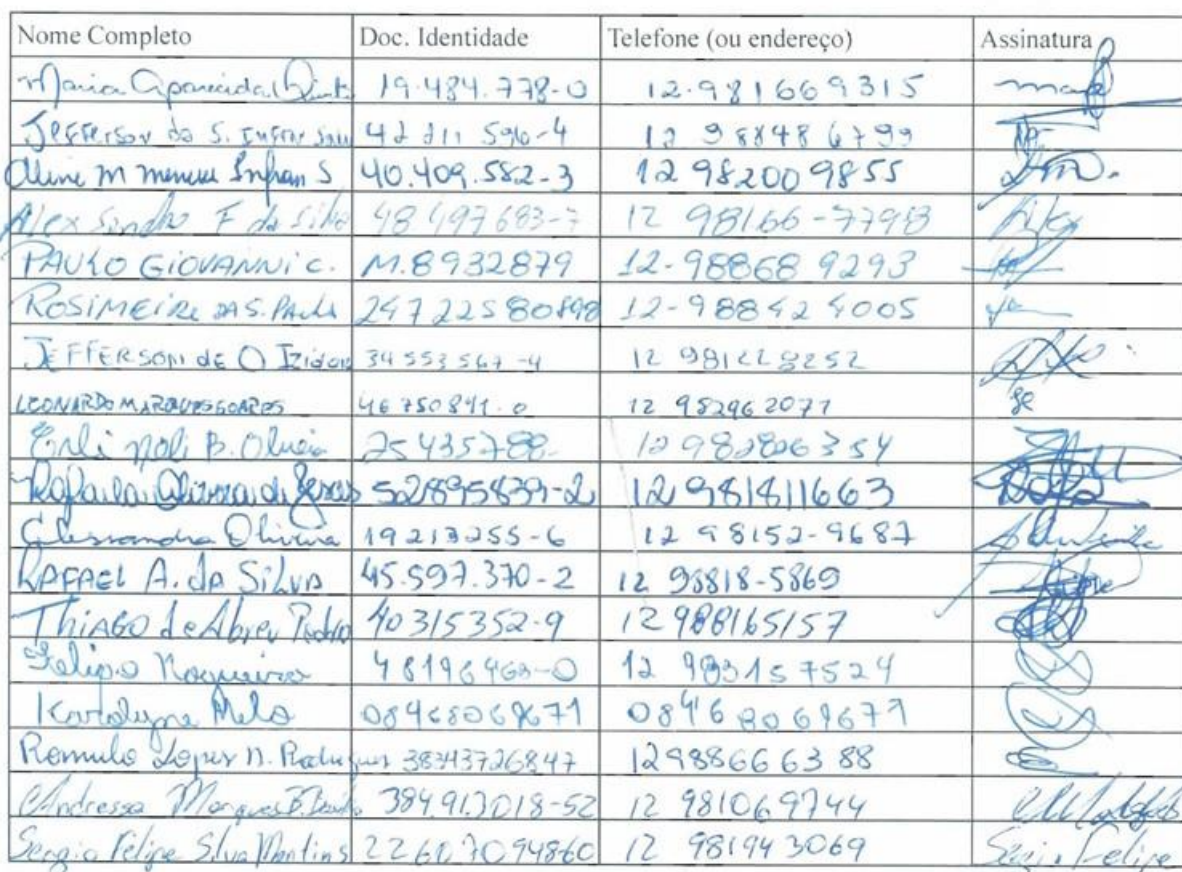 Nome Completo Doc. Identidade Telefone (ou endereço) Assinatura
Maria Aparecida 19.484.778-0 12.981669315
Jefferson da S. 42 211 596-4 12 988486799
Aline M 40.409.582-3 12 982009855
Alex Sandro F da Silva 48 497683-7 12 98166-7798
PAULO GIOVANNI C. M.8932879 12-98868 9293
ROSIMEIRE DA S. PAULA 24722580898 12-98842 4005
JEFFERSON de O Izidoro 34 553 567-4 12 981228252
LEONARDO MARQUES SOARES 46 750841.0 12 982962077
B. Oliveira 25435788- 12 982826354
Rafaela Oliveira de Jesus 52895839-2 12 981811663
Alessandra Oliveira 19213255-6 12 98152-9687
RAFAEL A. da SILVA 45.597.370-2 12 98818-5869
THIAGO de Abreu Pedro 40315352-9 12 988165157
Felipe Nogueira 48196463-0 12 983157524
Karolyne Melo 08468069671 08468069671
Romulo Lopes N. Rodrigues 38343726847 12988666388
Andressa Marques B. 384.913018-52 12 981069744
Sergio Felipe Silva Martins 22607094860 12 981943069 Felipe